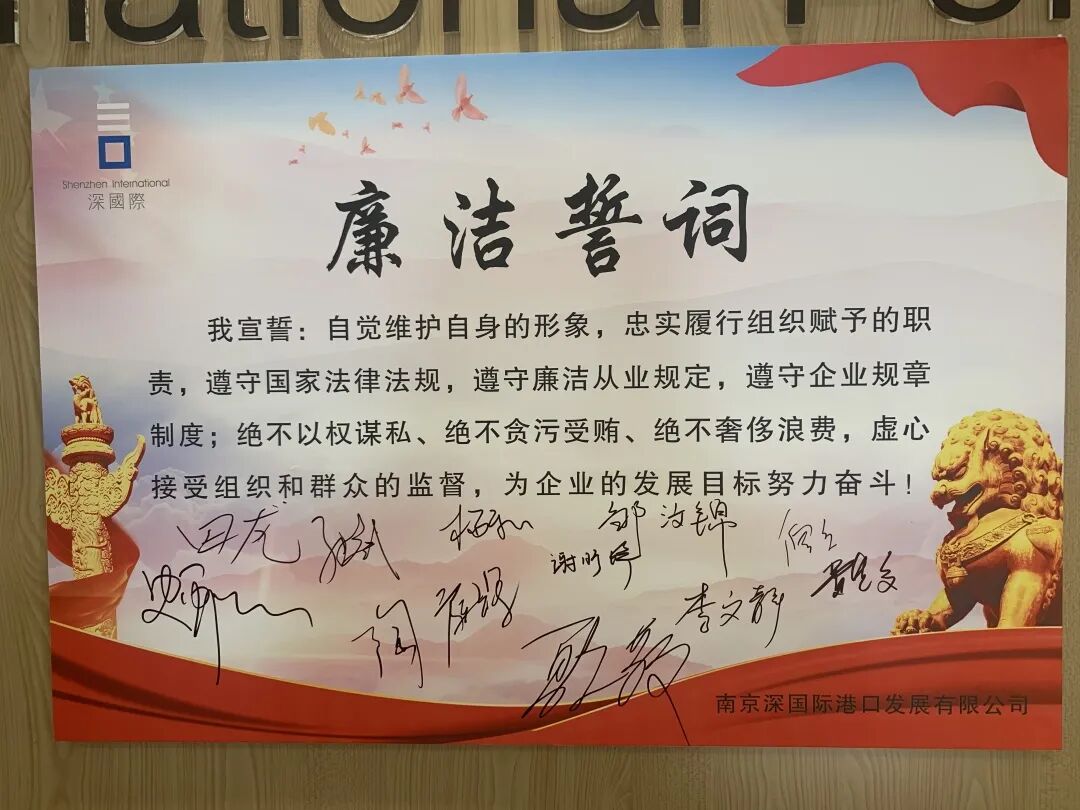 national P
Shenzhen International
深國際
廉洁誓词
我宣誓：自觉维护自身的形象，忠实履行组织赋予的职
责，遵守国家法律法规，遵守廉洁从业规定，遵守企业规章
制度；绝不以权谋私、绝不贪污受贿、绝不奢侈浪费，虚心
接受组织和群众的监督，为企业的发展目标努力奋斗！
田龙
邹汝锦
李文静
南京深国际港口发展有限公司